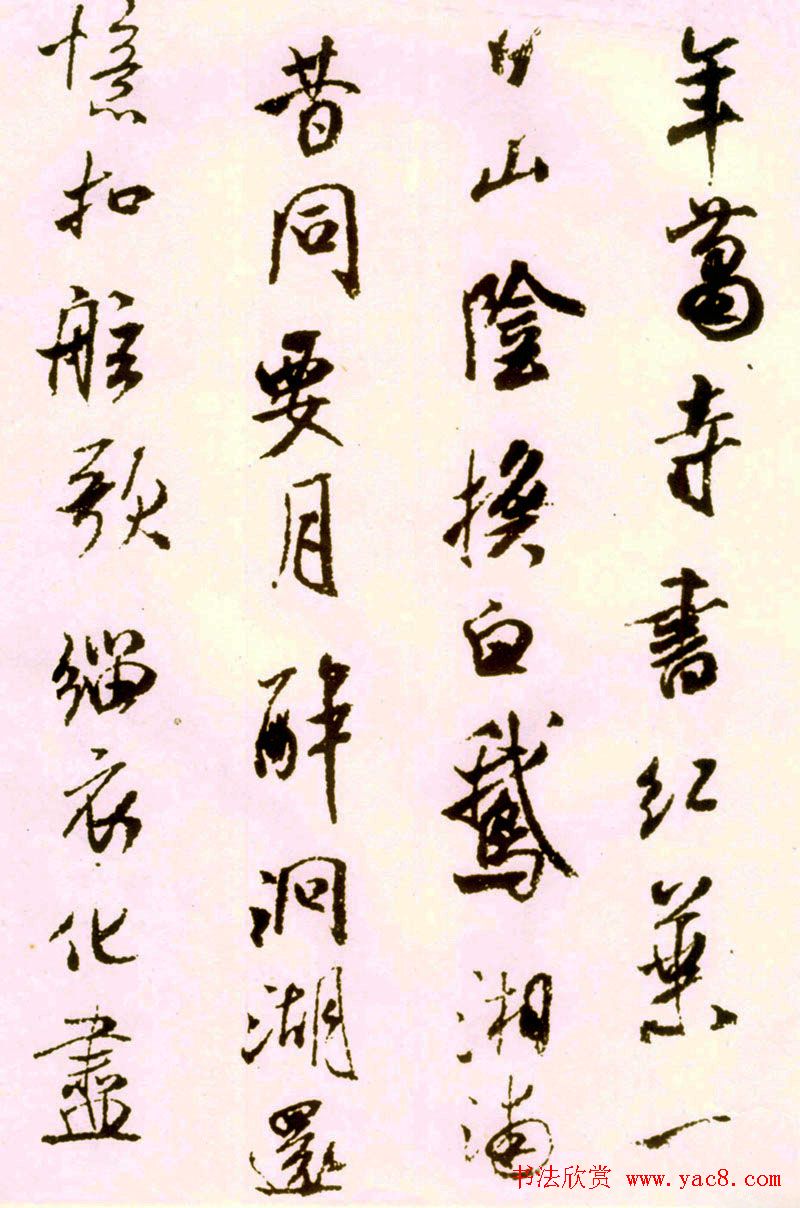 年萬寺書紅葉一
日山陰換白鵝湘浦
昔同要月醉洞湖還
憶扣舷歌緇衣化盡
书法欣赏 www.yac8.com